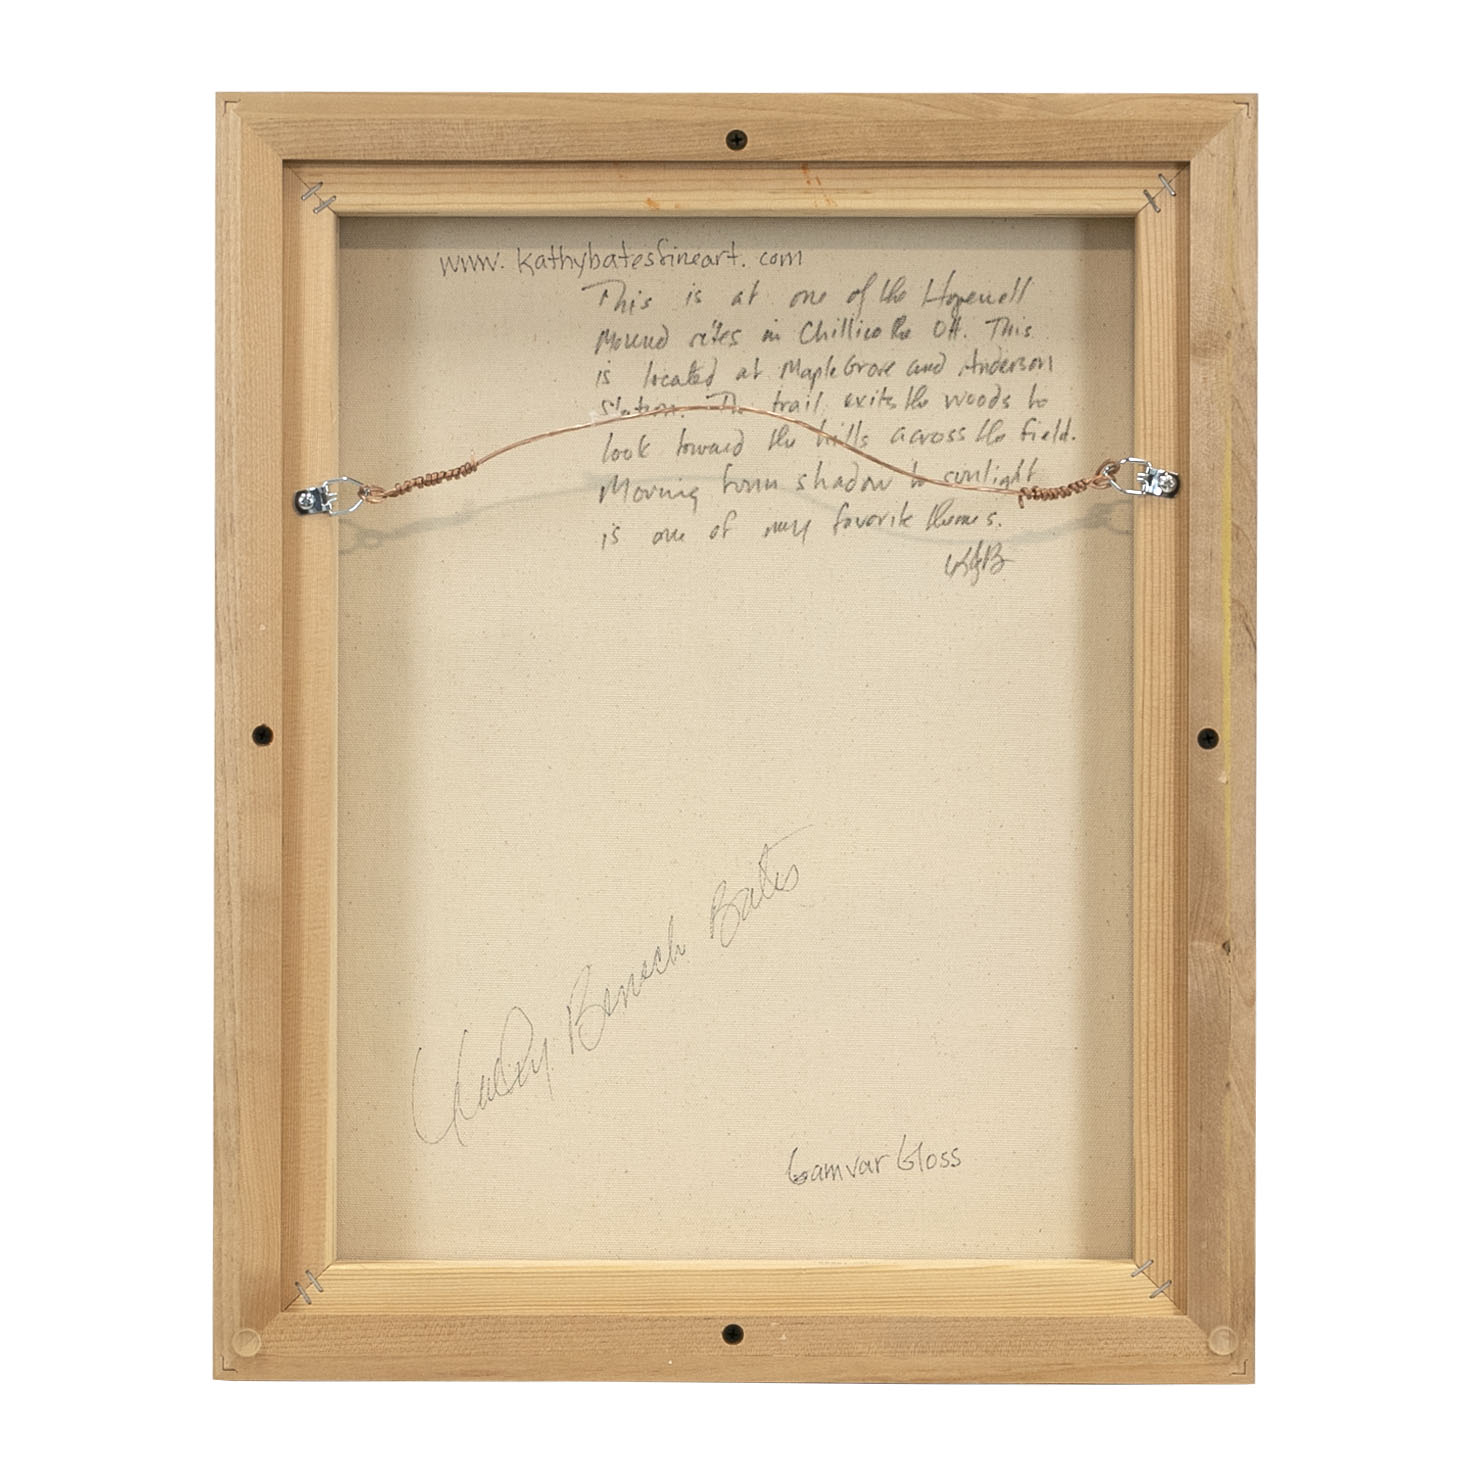 www.kathybatesfineart.com
This is at one of the Hopewell
Mound sites in Chillicothe OH. This
is located at Maple Grove and Anderson
Station. The trail exits the woods to
look toward the hills across the field.
Moving from shadow to sunlight
is one of my favorite themes.
KBB
Kathy Benech Bates
Gamvar Gloss